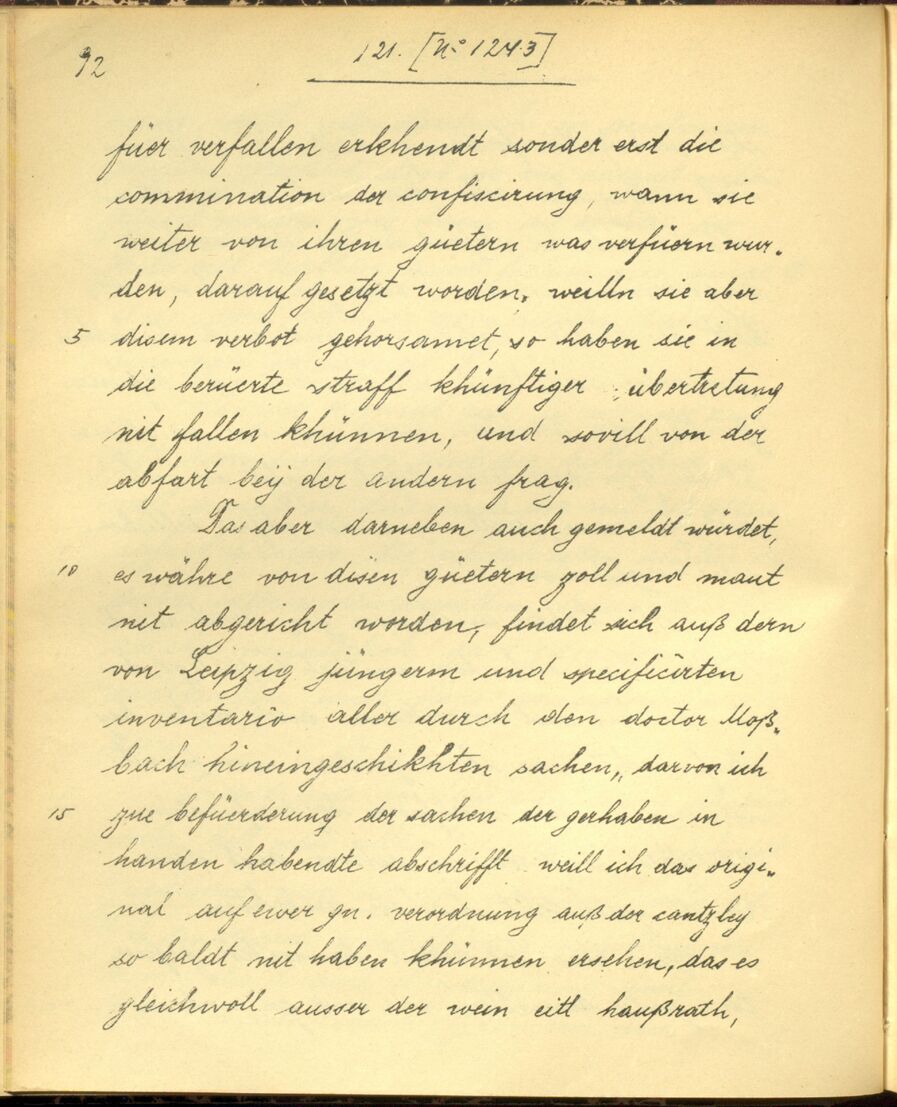 92
121. [No 1243]
füer verfallen erkhendt sonder erst die
commination der confiscirung, wann sie
weiter von ihren güetern was verfüern wur„
den, darauf gesetzt worden, weilln sie aber
5 disem verbot gehorsamet, so haben sie in
die berüerte straff khünftiger übertretung
nit fallen khünnen, und sovill von der
abfart beÿ der andern frag.
Das aber darneben auch gemeldt würdet,
10 es währe von disen güetern zoll und maut
nit abgericht worden, findet sich auß dern
von Leipzig jüngerm und specificirten
inventario aller durch den doctor Moß„
bach hineingeschikhten sachen, darvon ich
15 zue befüerderung der sachen der gerhaben in
handen habendte abschrifft weill ich das origi„
nal auf ewer gn. verordnung auß der cantzley
so baldt nit haben khünnen ersehen, das es
gleichwoll ausser der wein eitl haußrath,